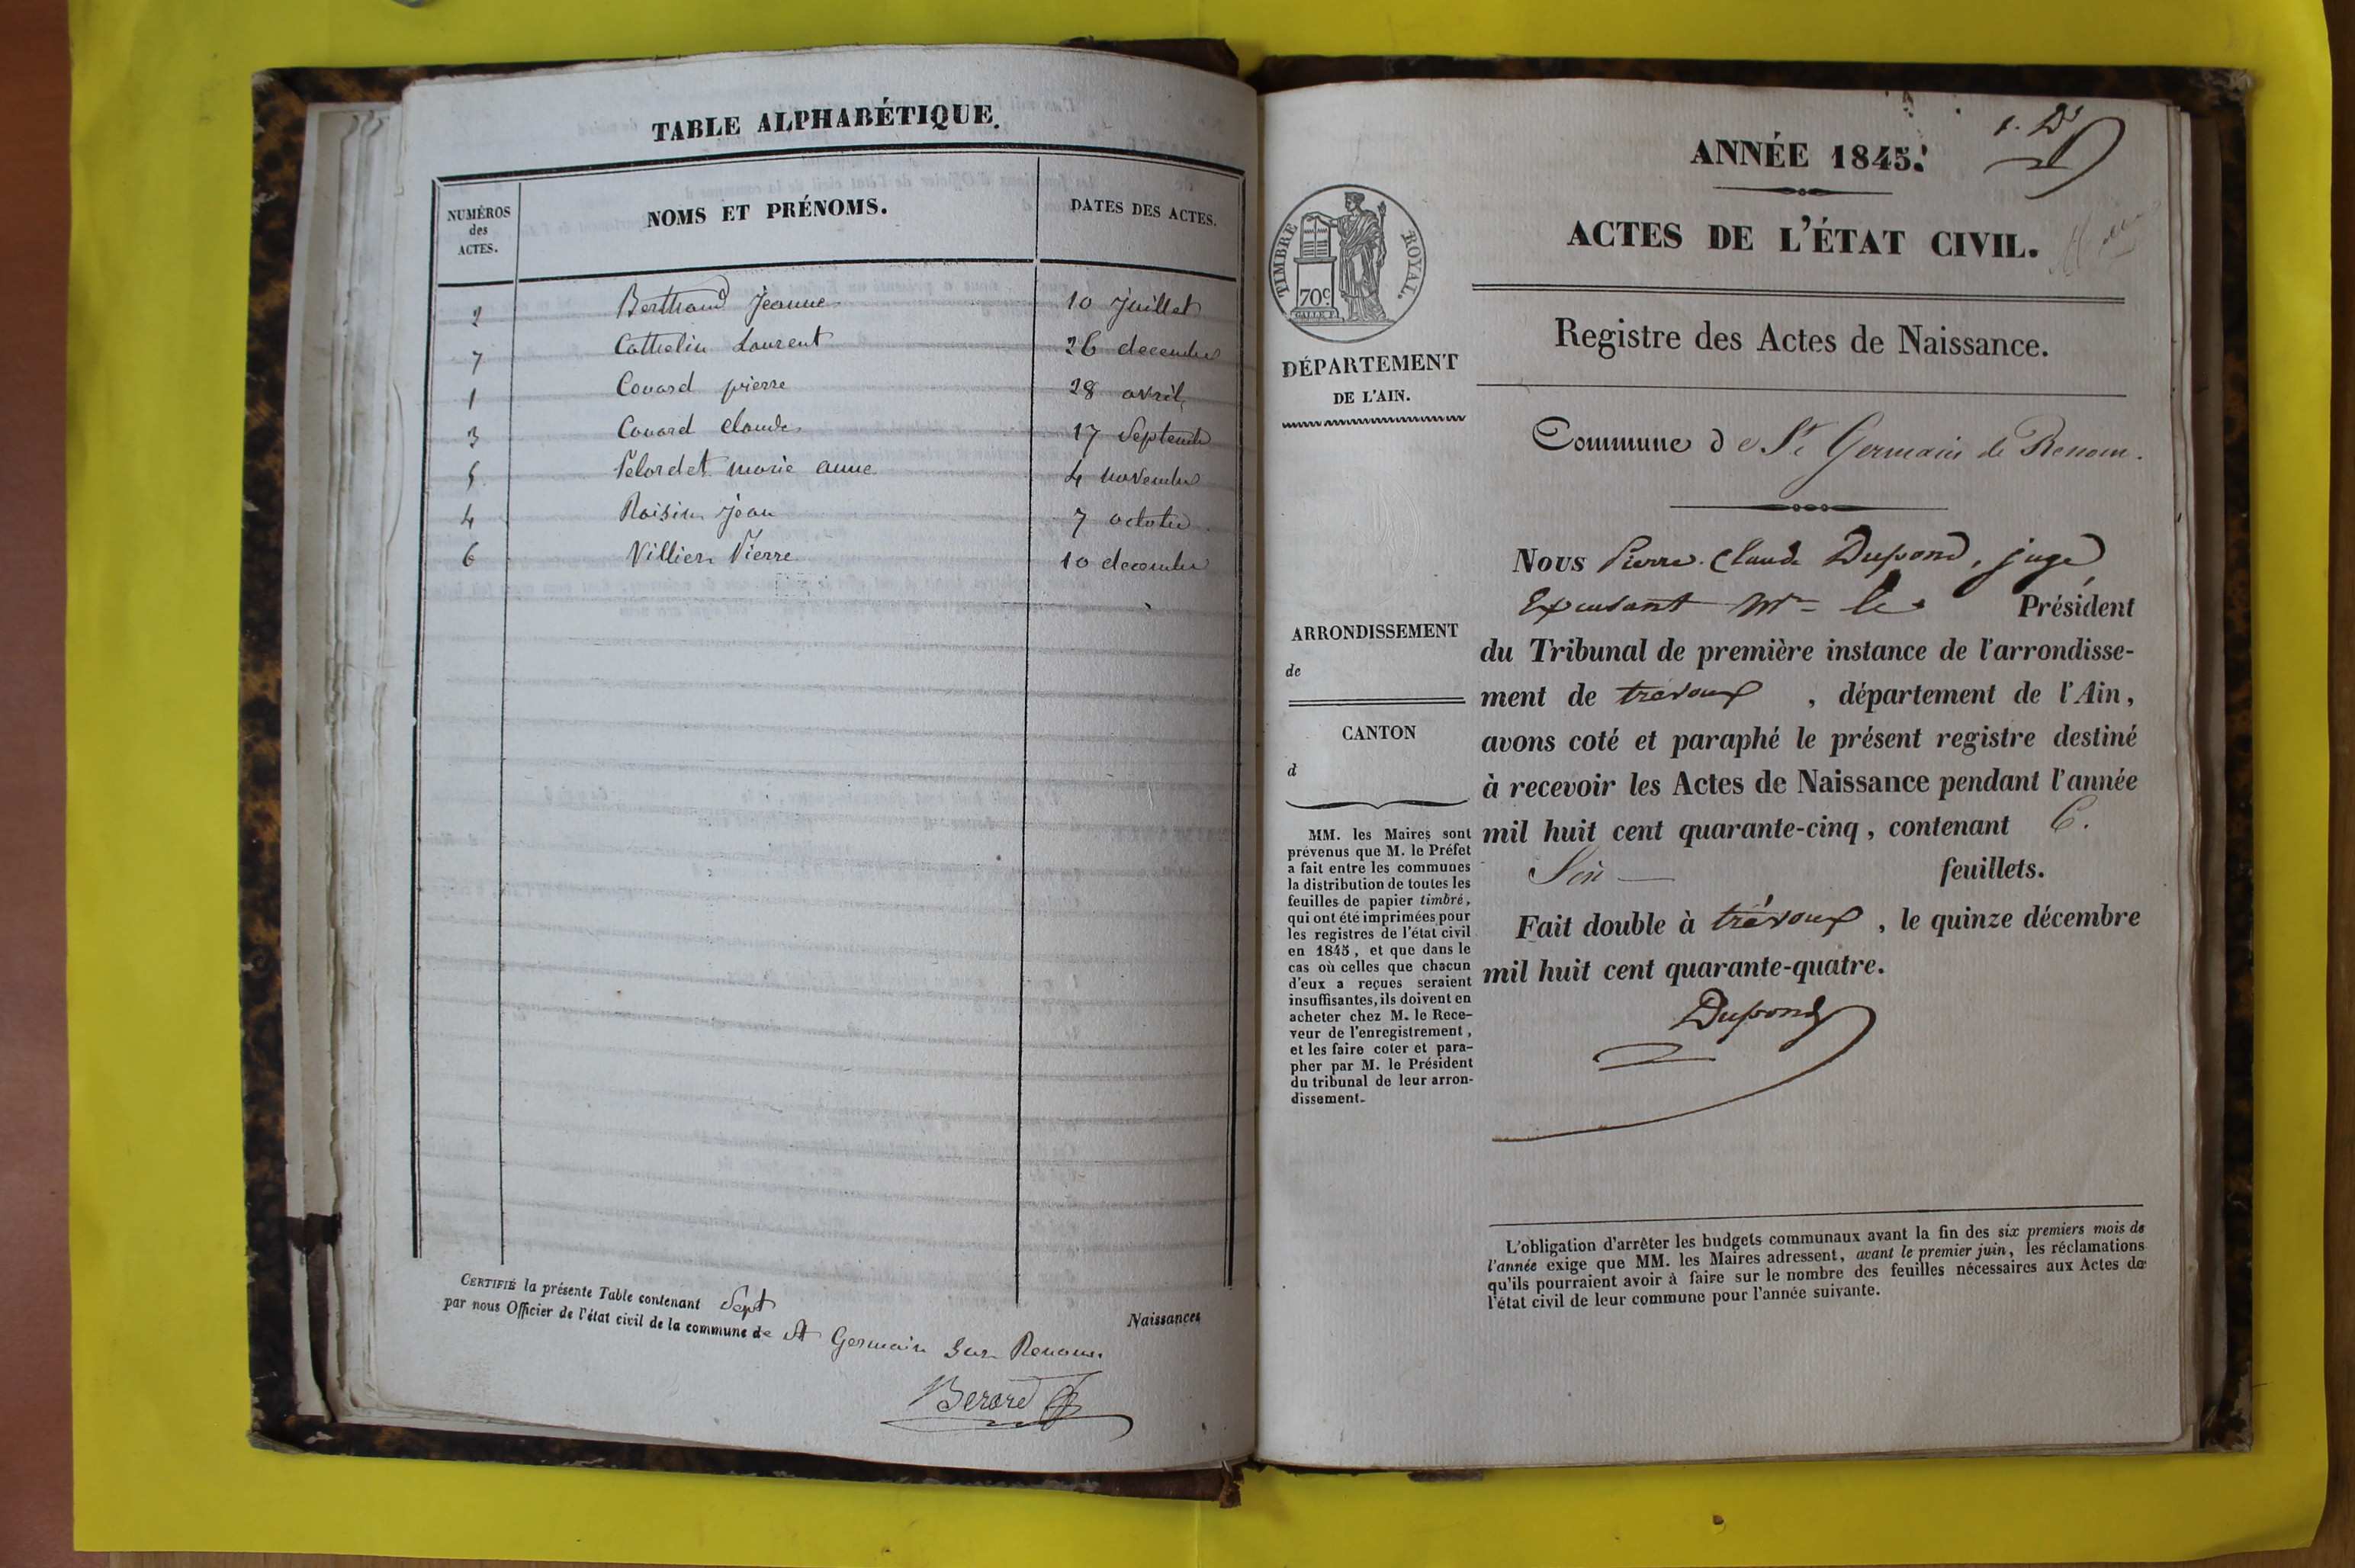 TABLE ALPHABÉTIQUE.
NUMÉROS des ACTES.
NOMS ET PRÉNOMS.
DATES DES ACTES.
2 Berthaud Jeanne 10 juillet
7 Cathelin Laurent 26 decembre
1 Couard pierre 28 avril
3 Couard Claude 17 Septembre
5 Pelordet marie anne 4 novembre
4 Raisin jean 7 octobre
6 Villier Pierre 10 decembre
CERTIFIÉ la présente Table contenant Sept Naissances
par nous Officier de l'état civil de la commune de St Germain sur Renom
Berard
ANNÉE 1845.
ACTES DE L'ÉTAT CIVIL.
TIMBRE ROYAL.
70c.
DÉPARTEMENT
DE L'AIN.
Registre des Actes de Naissance.
Commune de St Germain de Renom.
ARRONDISSEMENT
de
CANTON
d
MM. les Maires sont
prévenus que M. le Préfet
a fait entre les communes
la distribution de toutes les
feuilles de papier timbré,
qui ont été imprimées pour
les registres de l'état civil
en 1845, et que dans le
cas où celles que chacun
d'eux a reçues seraient
insuffisantes, ils doivent en
acheter chez M. le Rece-
veur de l'enregistrement,
et les faire coter et para-
pher par M. le Président
du tribunal de leur arron-
dissement.
Nous Pierre Claude Dupond, juge
Excusant Mr le Président
du Tribunal de première instance de l'arrondisse-
ment de trévoux, département de l'Ain,
avons coté et paraphé le présent registre destiné
à recevoir les Actes de Naissance pendant l'année
mil huit cent quarante-cinq, contenant 6.
Six feuillets.
Fait double à trévoux, le quinze décembre
mil huit cent quarante-quatre.
Dupond
L'obligation d'arrêter les budgets communaux avant la fin des six premiers mois de
l'année exige que MM. les Maires adressent, avant le premier juin, les réclamations
qu'ils pourraient avoir à faire sur le nombre des feuilles nécessaires aux Actes de
l'état civil de leur commune pour l'année suivante.